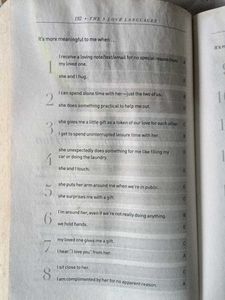 192 • THE 5 LOVE LANGUAGES
It's more meaningful to me when . . .
1
I receive a loving note/text/email for no special reason from
my loved one.
she and I hug.
2
I can spend alone time with her—just the two of us.
she does something practical to help me out.
3
she gives me a little gift as a token of our love for each other.
I get to spend uninterrupted leisure time with her.
4
she unexpectedly does something for me like filling my
car or doing the laundry.
she and I touch.
5
she puts her arm around me when we're in public.
she surprises me with a gift.
6
I'm around her, even if we're not really doing anything.
we hold hands.
7
my loved one gives me a gift.
I hear "I love you" from her.
8
I sit close to her.
I am complimented by her for no apparent reason.
It's m